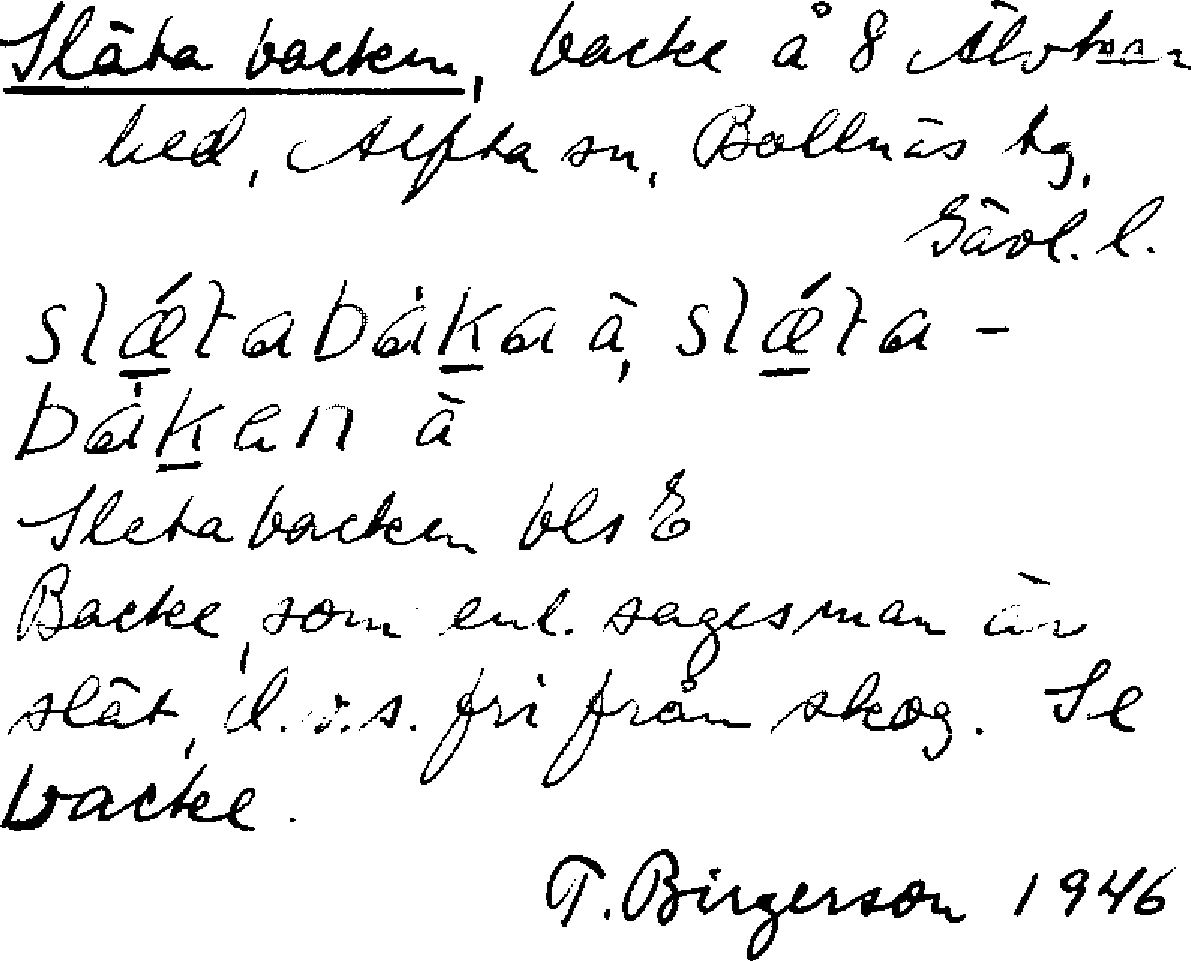 Släta backen, backe å 8 Älvkar-
hed, Alfta sn, Bollnäs tg,
Gävl. l.
slǽtabáka à, slǽta-
bákan à
Sleta backen bls E
Backe, som enl. sagesman är
slät, d.v.s. fri från skog. Se
backe.
T. Birgerson 1946